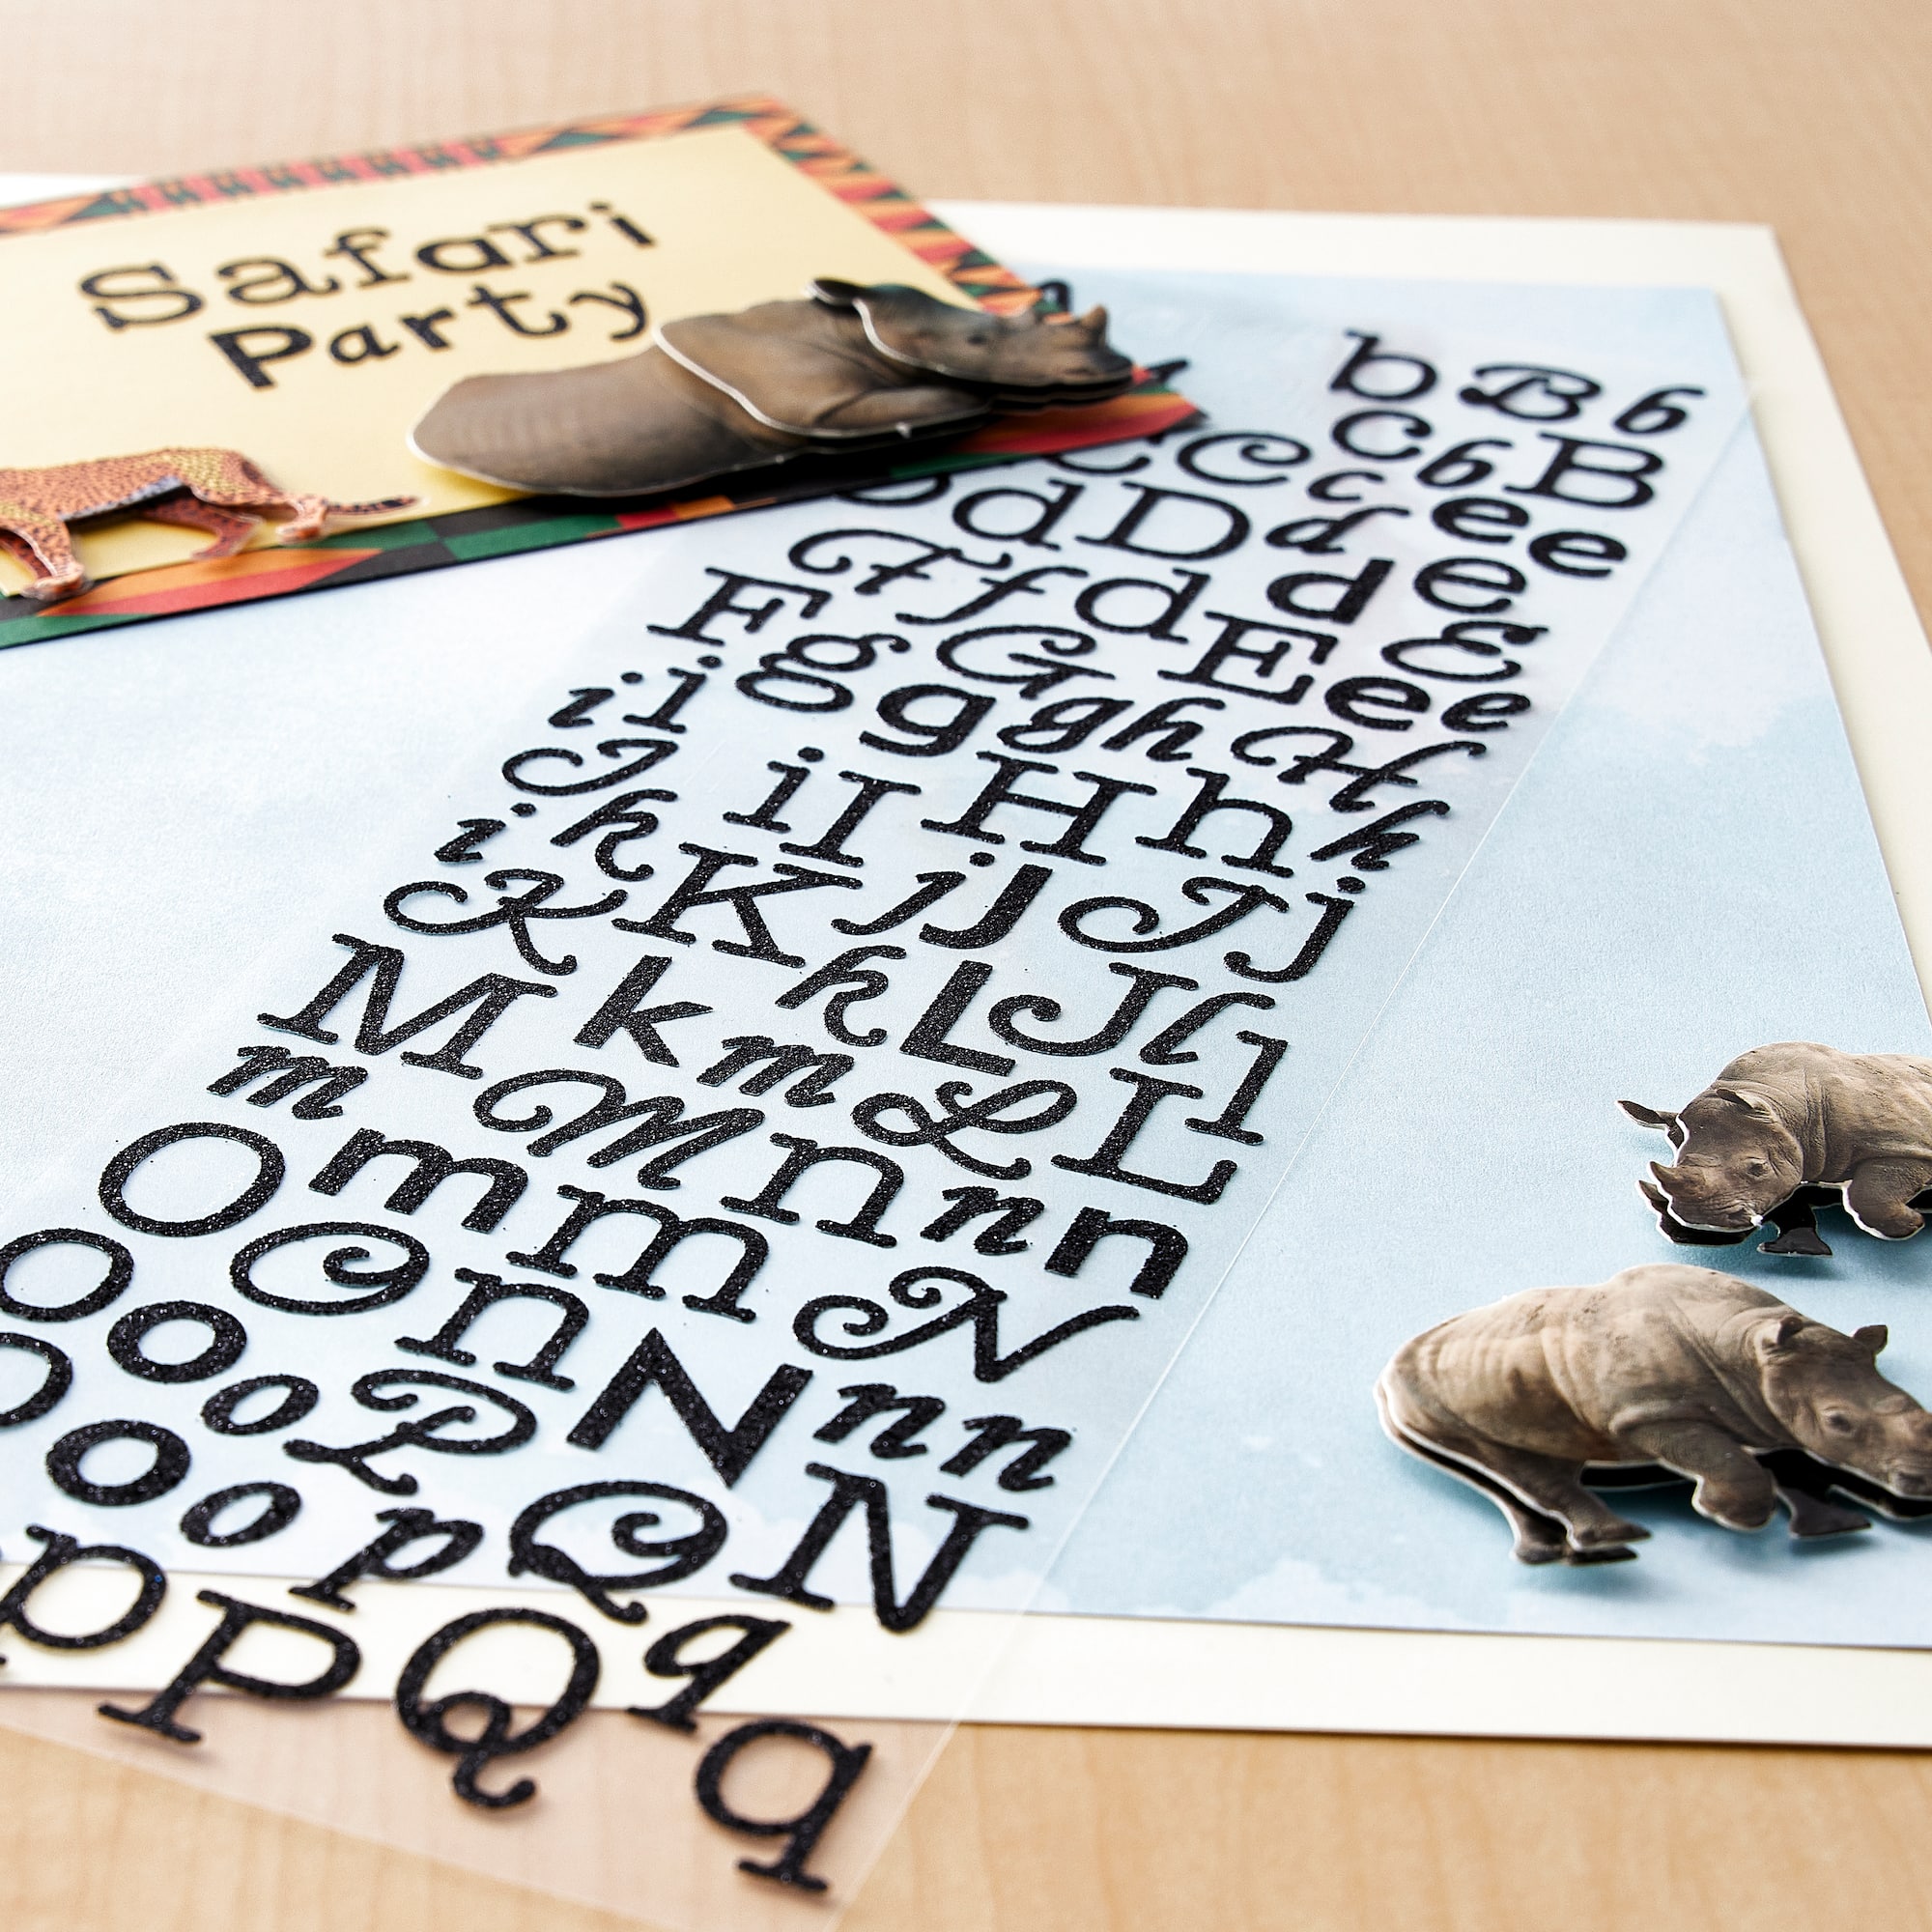 Safari
Party
b B b
c b B
C c e e
D d D d d e
F f d E E
F g G e e
i i g g h H
J i I H h h
i k K j J J j
K k k L J l l
M k m L L
m M n n n
O m m N
o O n N n n
o o P N
o o p Q q
p P Q q